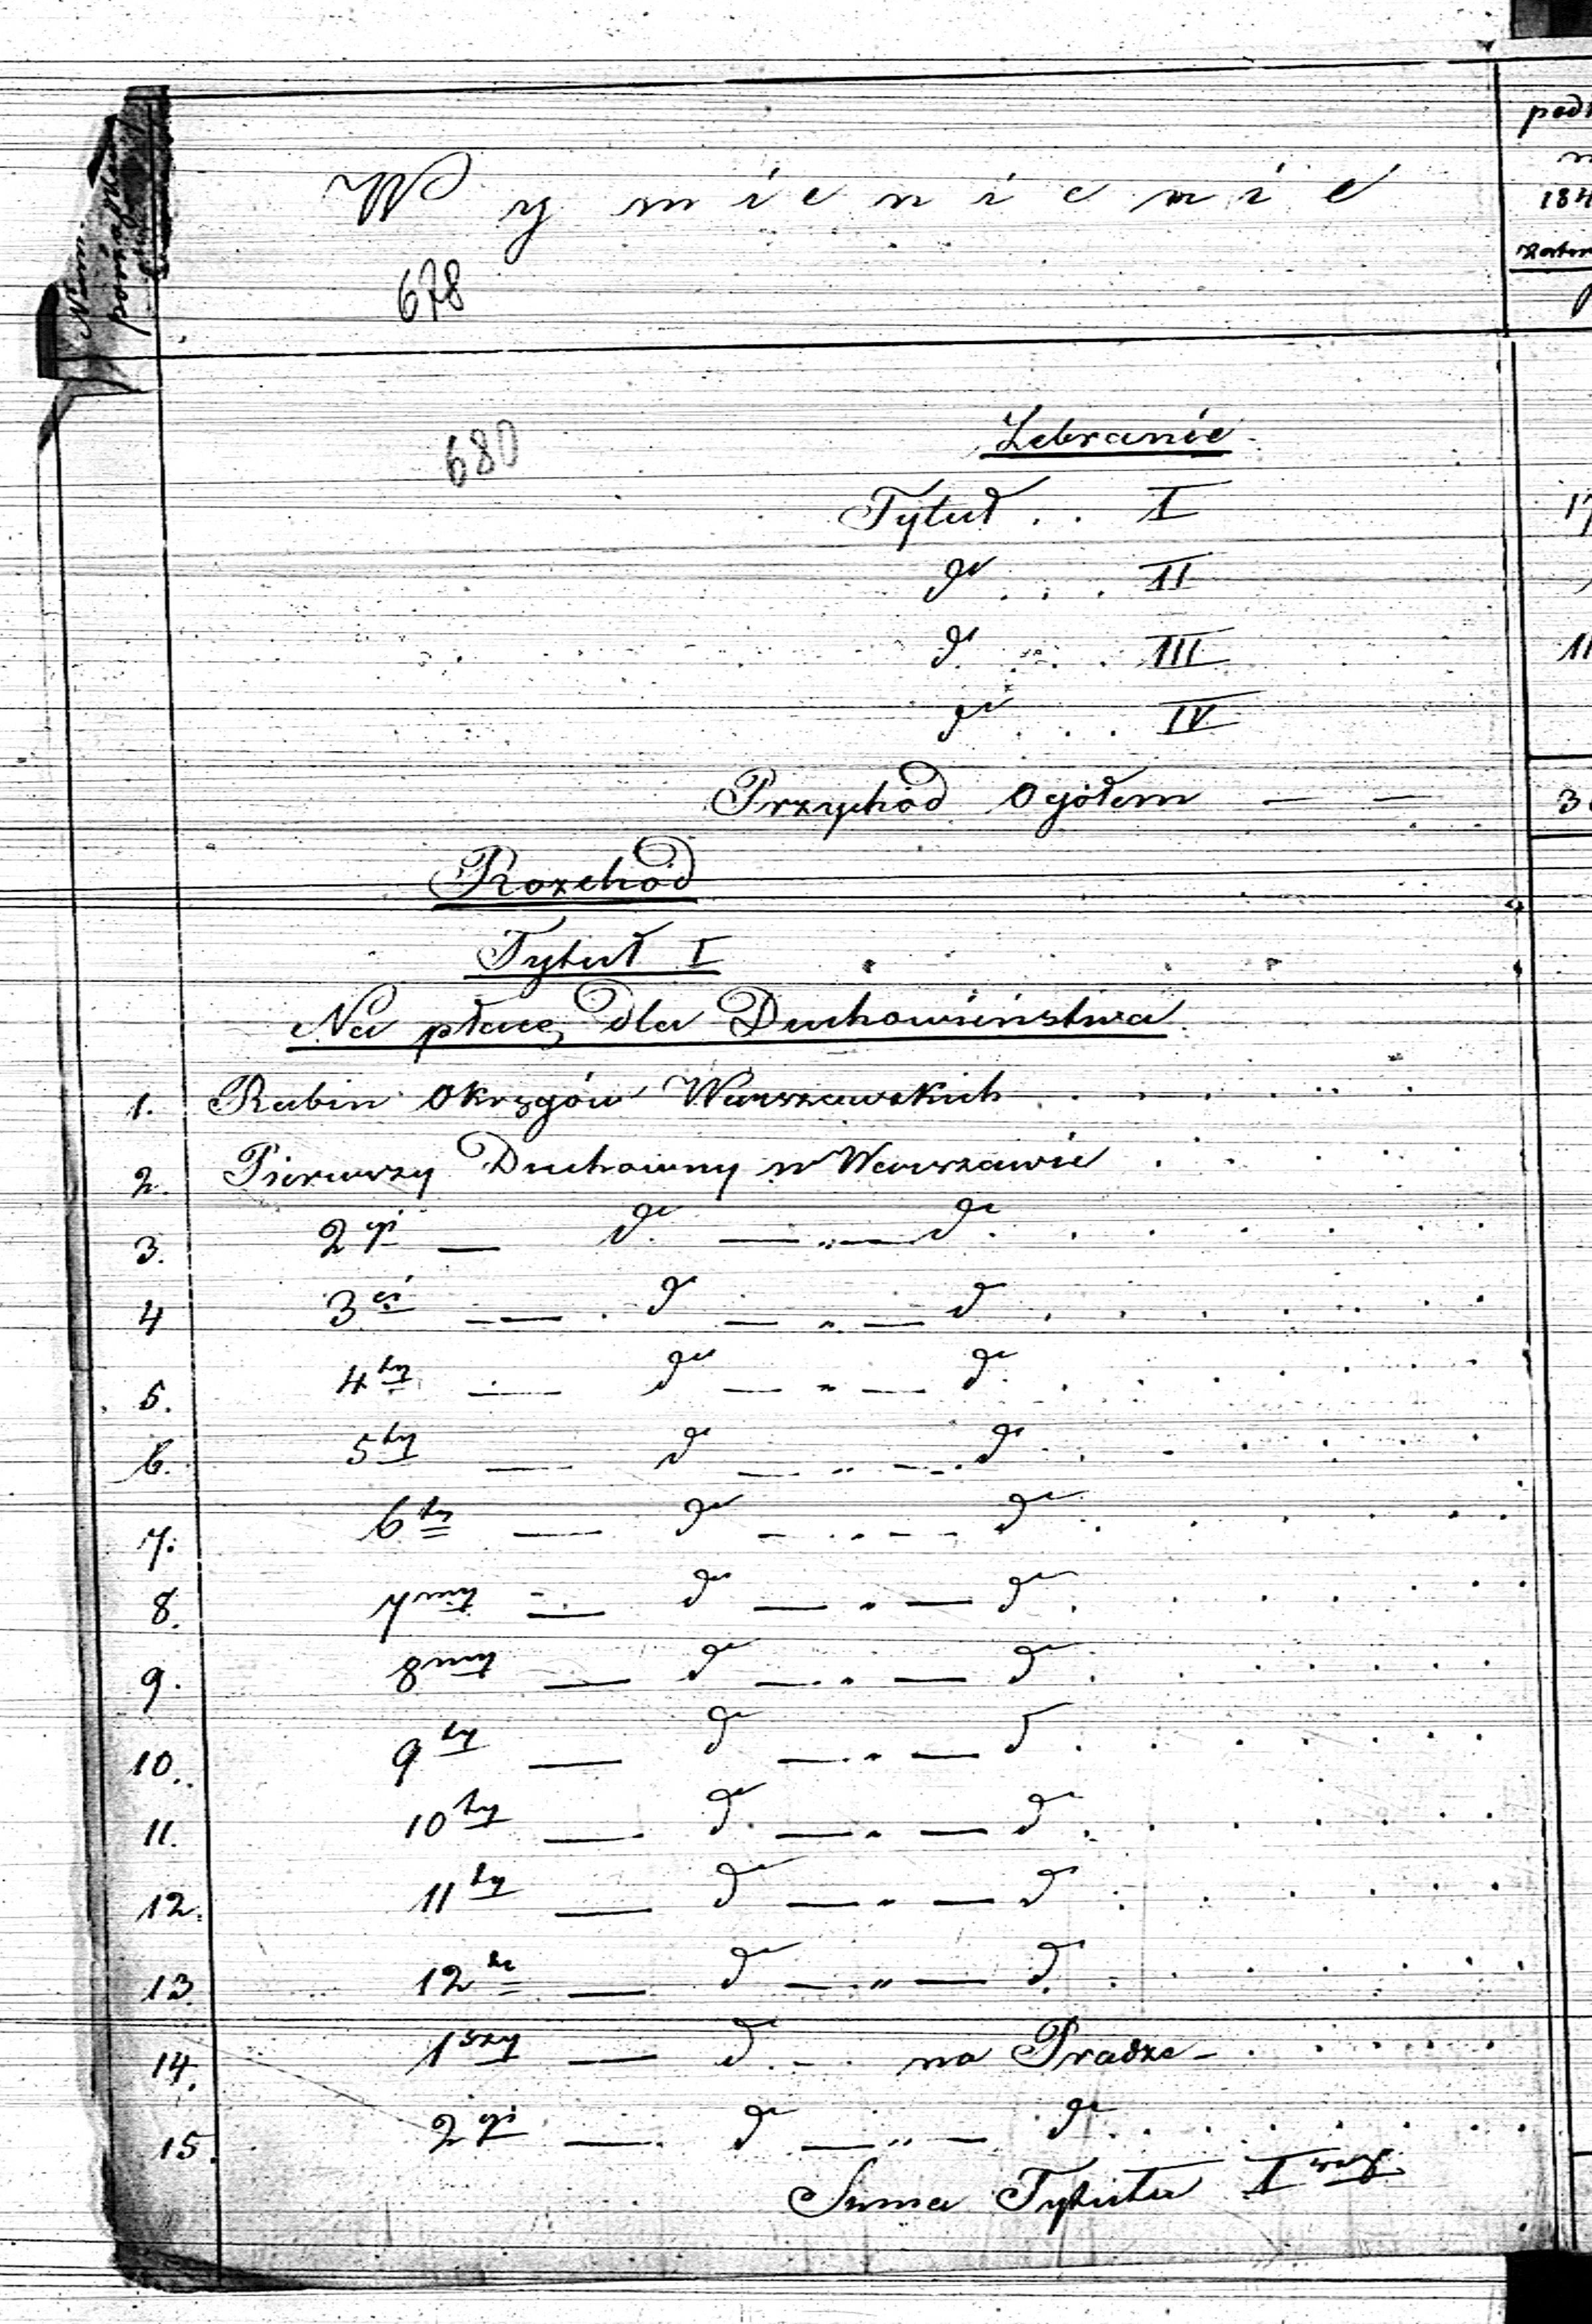 Wymienienie
678
680
Zebranie
Tytuł . . I
do . . . II
do . . . III
do . . . IV
Przychód Ogółem — —
Rozchód
Tytuł I
Na płacę dla Duchowieństwa
1. Rabin Okręgów Warszawskich . . . . . .
2. Pierwszy Duchowny w Warszawie . . . . .
3. 2gi — do — „ — do . . . . . .
4 3ci — do — „ — do . . . . . .
5. 4ty — do — „ — do . . . . . .
6. 5ty — do — „ — do . . . . . .
7. 6ty — do — „ — do . . . . . .
8. 7my — do — „ — do . . . . . .
9. 8my — do — „ — do . . . . . .
10. 9ty — do — „ — do . . . . . .
11. 10ty — do — „ — do . . . . . .
12. 11ty — do — „ — do . . . . . .
13. 12ty — do — „ — do . . . . . .
14. 1szy — do — na Pradze . . . . . .
15. 2gi — do — „ — do . . . . . .
Suma Tytułu I